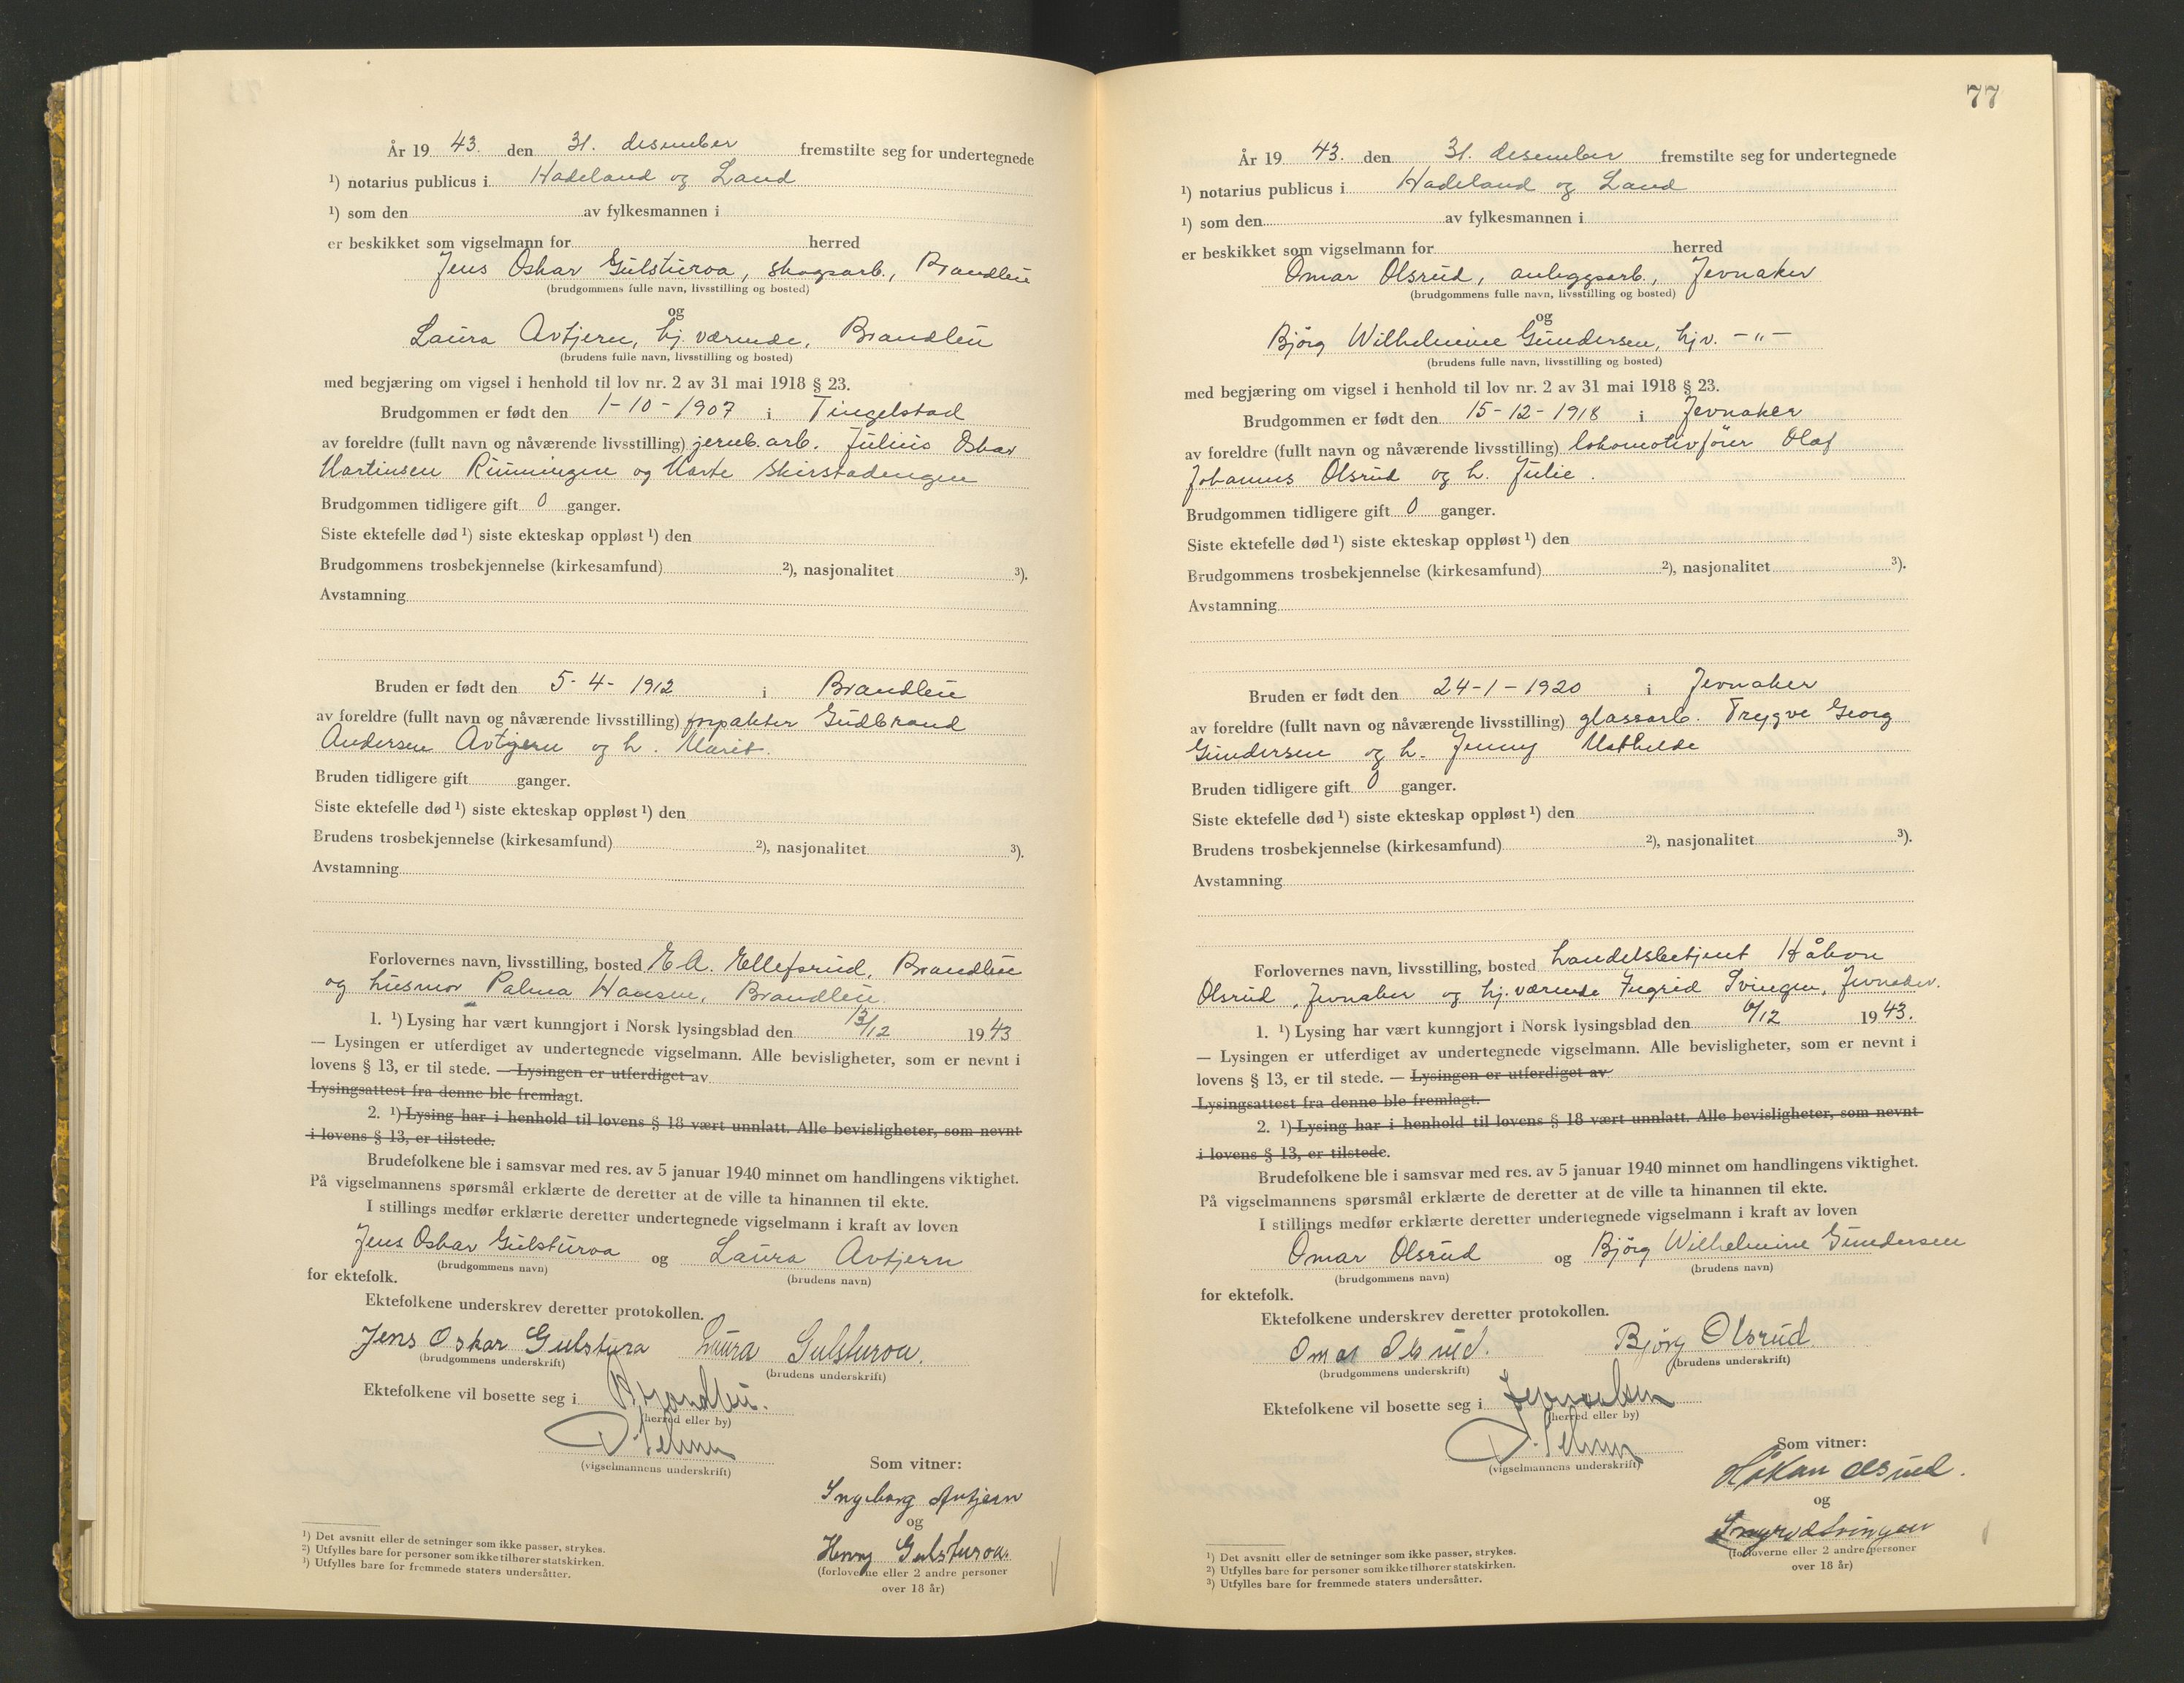 År 19 43. den 31. desember fremstilte seg for undertegnede
¹) notarius publicus i Hadeland og Land
¹) som den av fylkesmannen i
er beskikket som vigselmann for herred
Jens Oskar Gulsturoa, skogsarb., Brandbu
(brudgommens fulle navn, livsstilling og bosted)
og
Laura Avtjern, hj. værende, Brandbu
(brudens fulle navn, livsstilling og bosted)
med begjæring om vigsel i henhold til lov nr. 2 av 31 mai 1918 § 23.
Brudgommen er født den 1-10-1907 i Tingelstad
av foreldre (fullt navn og nåværende livsstilling) jernb.arb. Julius Oskar
Martinsen Rünningen og Marte Skirstadengen
Brudgommen tidligere gift 0 ganger.
Siste ektefelle død ¹) siste ekteskap oppløst ¹) den
Brudgommens trosbekjennelse (kirkesamfund) ²), nasjonalitet ³).
Avstamning
Bruden er født den 5-4-1912 i Brandbu
av foreldre (fullt navn og nåværende livsstilling) forpakter Gudbrand
Andersen Avtjern og h. Marit.
Bruden tidligere gift ganger.
Siste ektefelle død ¹) siste ekteskap oppløst ¹) den
Brudens trosbekjennelse (kirkesamfund) ²), nasjonalitet ³).
Avstamning
Forlovernes navn, livsstilling, bosted E.A. Ellefsrud, Brandbu
og husmor Palma Hansen, Brandbu.
1. ¹) Lysing har vært kunngjort i Norsk lysingsblad den 13/12 1943
— Lysingen er utferdiget av undertegnede vigselmann. Alle bevisligheter, som er nevnt i
lovens § 13, er til stede. — Lysingen er utferdiget av
Lysingsattest fra denne ble fremlagt.
2. ¹) Lysing har i henhold til lovens § 18 vært unnlatt. Alle bevisligheter, som nevnt
i lovens § 13, er tilstede.
Brudefolkene ble i samsvar med res. av 5 januar 1940 minnet om handlingens viktighet.
På vigselmannens spørsmål erklærte de deretter at de ville ta hinannen til ekte.
I stillings medfør erklærte deretter undertegnede vigselmann i kraft av loven
Jens Oskar Gulsturoa og Laura Avtjern
(brudgommens navn) (brudens navn)
for ektefolk.
Ektefolkene underskrev deretter protokollen.
Jens Oskar Gulstura Laura Gulsturoa.
(brudgommens underskrift) (brudens underskrift)
Ektefolkene vil bosette seg i Brandbu.
(herred eller by)
(vigselmannens underskrift)
Som vitner:
Ingeborg Avtjern
og
Henry Gulsturoa.
(forloverne eller 2 andre personer
over 18 år)
¹) Det avsnitt eller de setninger som ikke passer, strykes.
²) Utfylles bare for personer som ikke tilhører statskirken.
³) Utfylles bare for fremmede staters undersåtter.
77
År 19 43. den 31. desember fremstilte seg for undertegnede
¹) notarius publicus i Hadeland og Land
¹) som den av fylkesmannen i
er beskikket som vigselmann for herred
Omar Olsrud, anleggsarb., Jevnaker
(brudgommens fulle navn, livsstilling og bosted)
og
Bjørg Wilhelmine Gundersen, hjv. -"-
(brudens fulle navn, livsstilling og bosted)
med begjæring om vigsel i henhold til lov nr. 2 av 31 mai 1918 § 23.
Brudgommen er født den 15-12-1918 i Jevnaker
av foreldre (fullt navn og nåværende livsstilling) lokomotivfører Olaf
Johannes Olsrud og h. Julie.
Brudgommen tidligere gift 0 ganger.
Siste ektefelle død ¹) siste ekteskap oppløst ¹) den
Brudgommens trosbekjennelse (kirkesamfund) ²), nasjonalitet ³).
Avstamning
Bruden er født den 24-1-1920 i Jevnaker
av foreldre (fullt navn og nåværende livsstilling) glassarb. Trygve Georg
Gundersen og h. Jenny Mathilde
Bruden tidligere gift 0 ganger.
Siste ektefelle død ¹) siste ekteskap oppløst ¹) den
Brudens trosbekjennelse (kirkesamfund) ²), nasjonalitet ³).
Avstamning
Forlovernes navn, livsstilling, bosted handelsbetjent Håkon
Olsrud, Jevnaker og hj. værende Ingrid Svingen, Jevnaker.
1. ¹) Lysing har vært kunngjort i Norsk lysingsblad den /12 1943.
— Lysingen er utferdiget av undertegnede vigselmann. Alle bevisligheter, som er nevnt i
lovens § 13, er til stede. — Lysingen er utferdiget av
Lysingsattest fra denne ble fremlagt.
2. ¹) Lysing har i henhold til lovens § 18 vært unnlatt. Alle bevisligheter, som nevnt
i lovens § 13, er tilstede.
Brudefolkene ble i samsvar med res. av 5 januar 1940 minnet om handlingens viktighet.
På vigselmannens spørsmål erklærte de deretter at de ville ta hinannen til ekte.
I stillings medfør erklærte deretter undertegnede vigselmann i kraft av loven
Omar Olsrud og Bjørg Wilhelmine Gundersen
(brudgommens navn) (brudens navn)
for ektefolk.
Ektefolkene underskrev deretter protokollen.
Omar Olsrud. Bjørg Olsrud.
(brudgommens underskrift) (brudens underskrift)
Ektefolkene vil bosette seg i Jevnaker
(herred eller by)
(vigselmannens underskrift)
Som vitner:
Håkon Olsrud.
og
Ingrid Svingen
(forloverne eller 2 andre personer
over 18 år)
¹) Det avsnitt eller de setninger som ikke passer, strykes.
²) Utfylles bare for personer som ikke tilhører statskirken.
³) Utfylles bare for fremmede staters undersåtter.